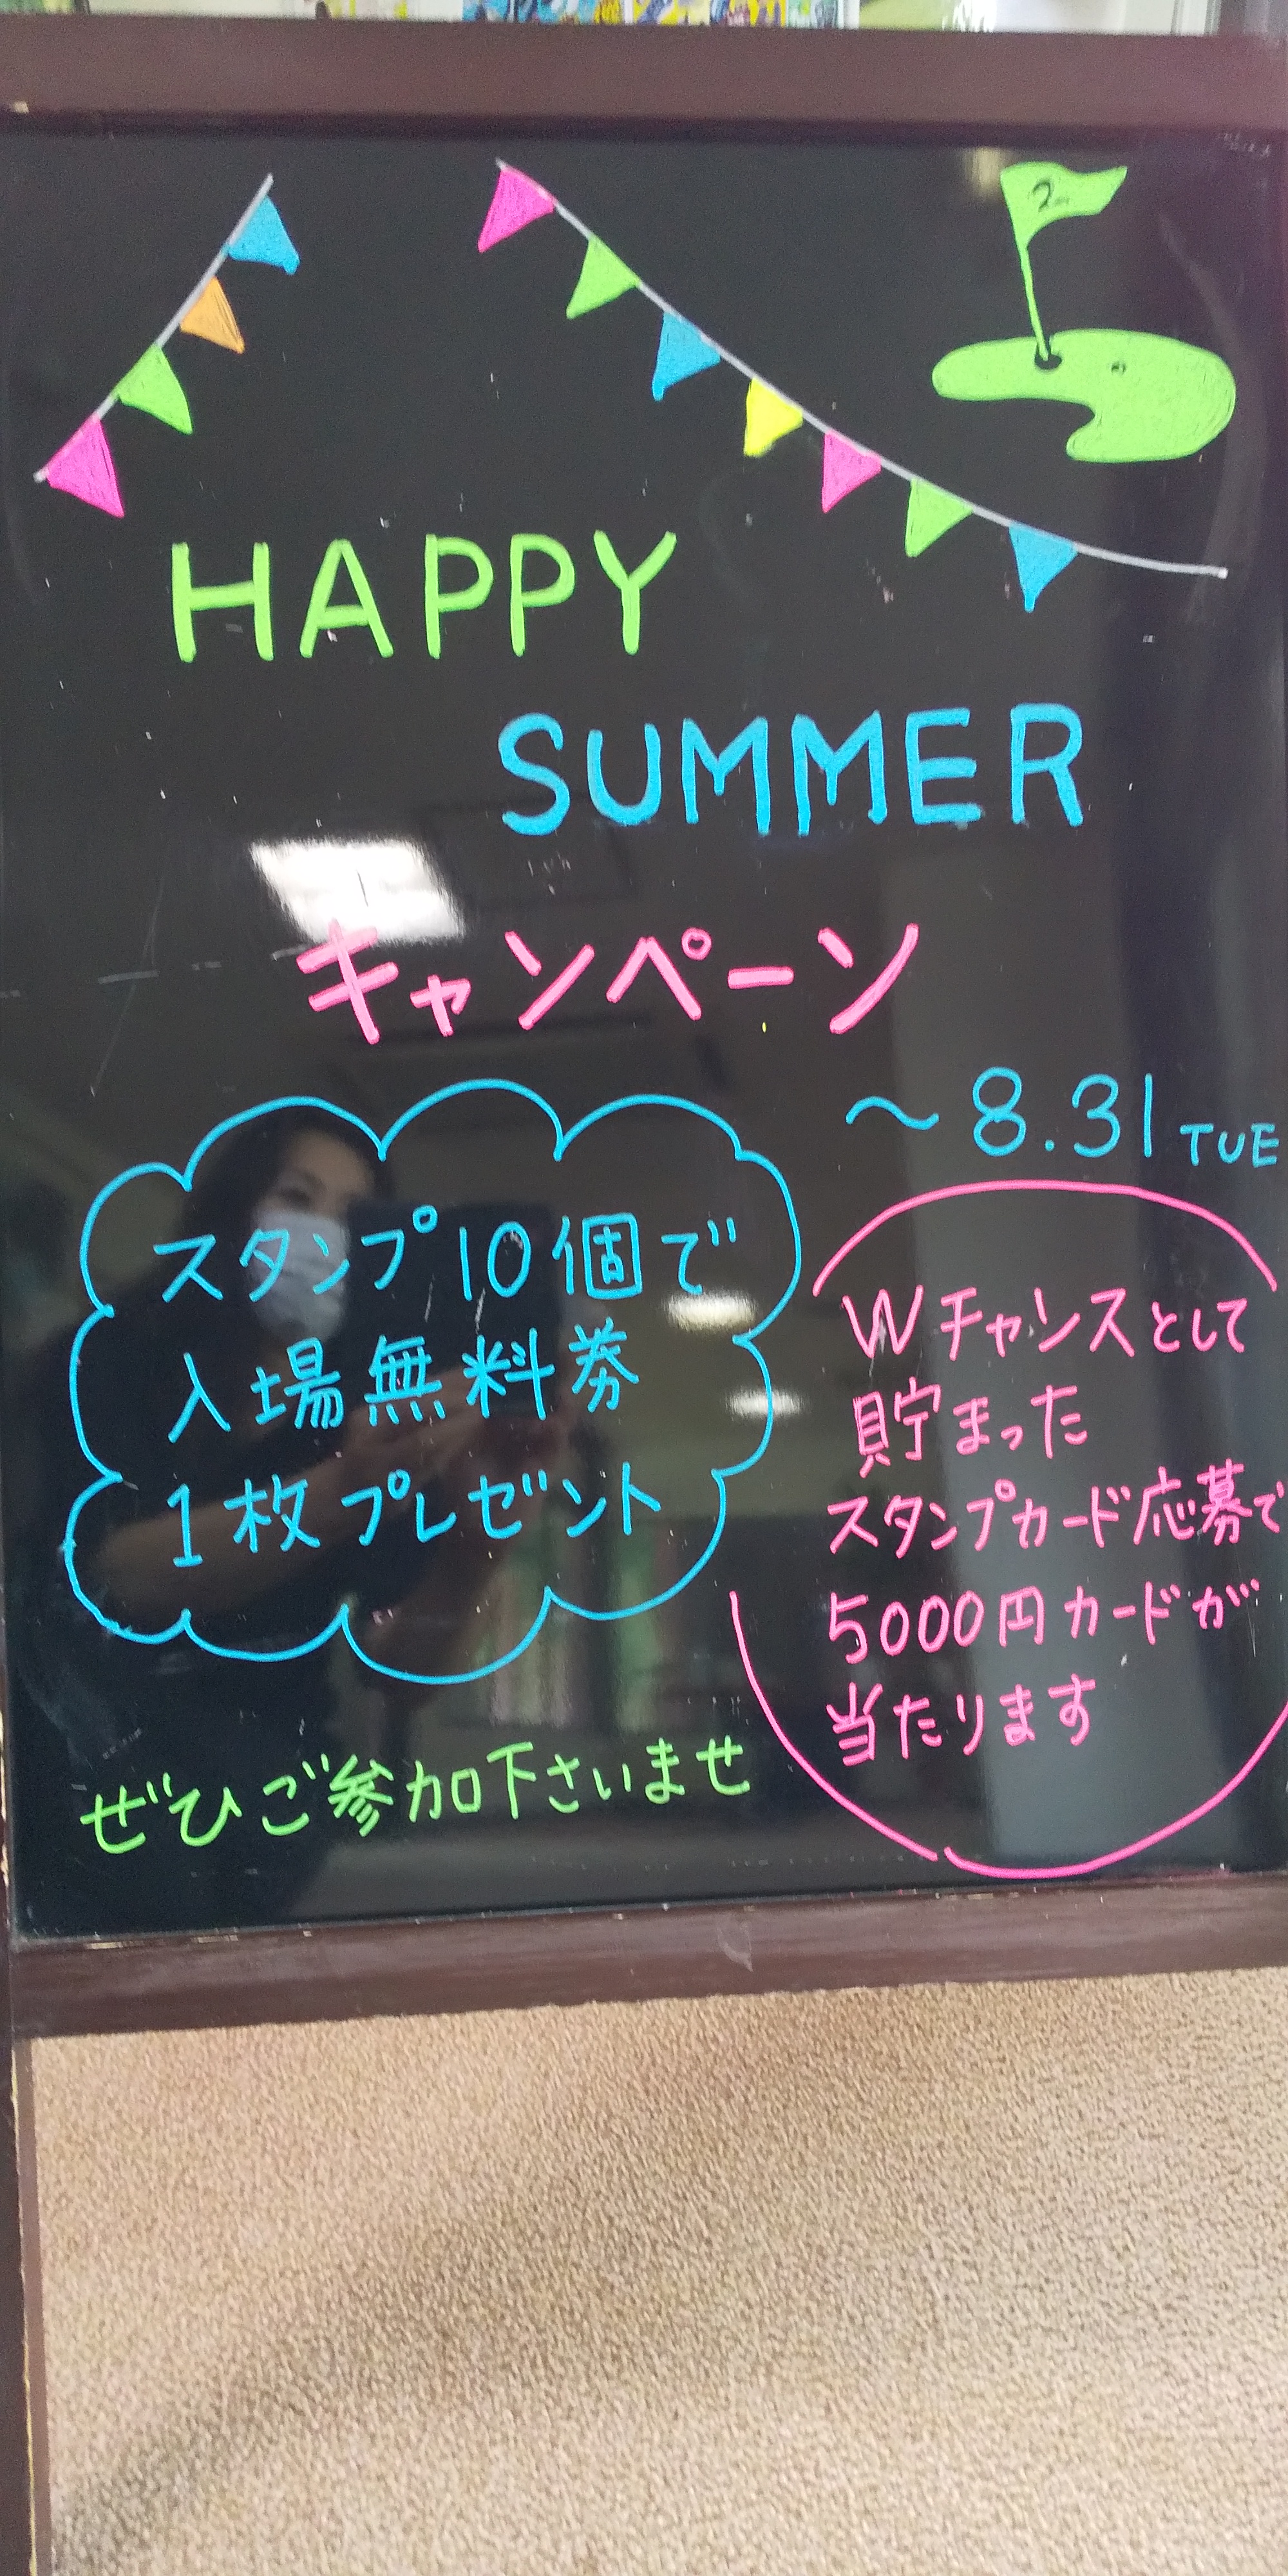 2
HAPPY
SUMMER
キャンペーン
～8.31 TUE
スタンプ10個で
入場無料券
1枚プレゼント
Wチャンスとして
貯まった
スタンプカード応募で
5000円カードが
当たります
ぜひご参加下さいませ